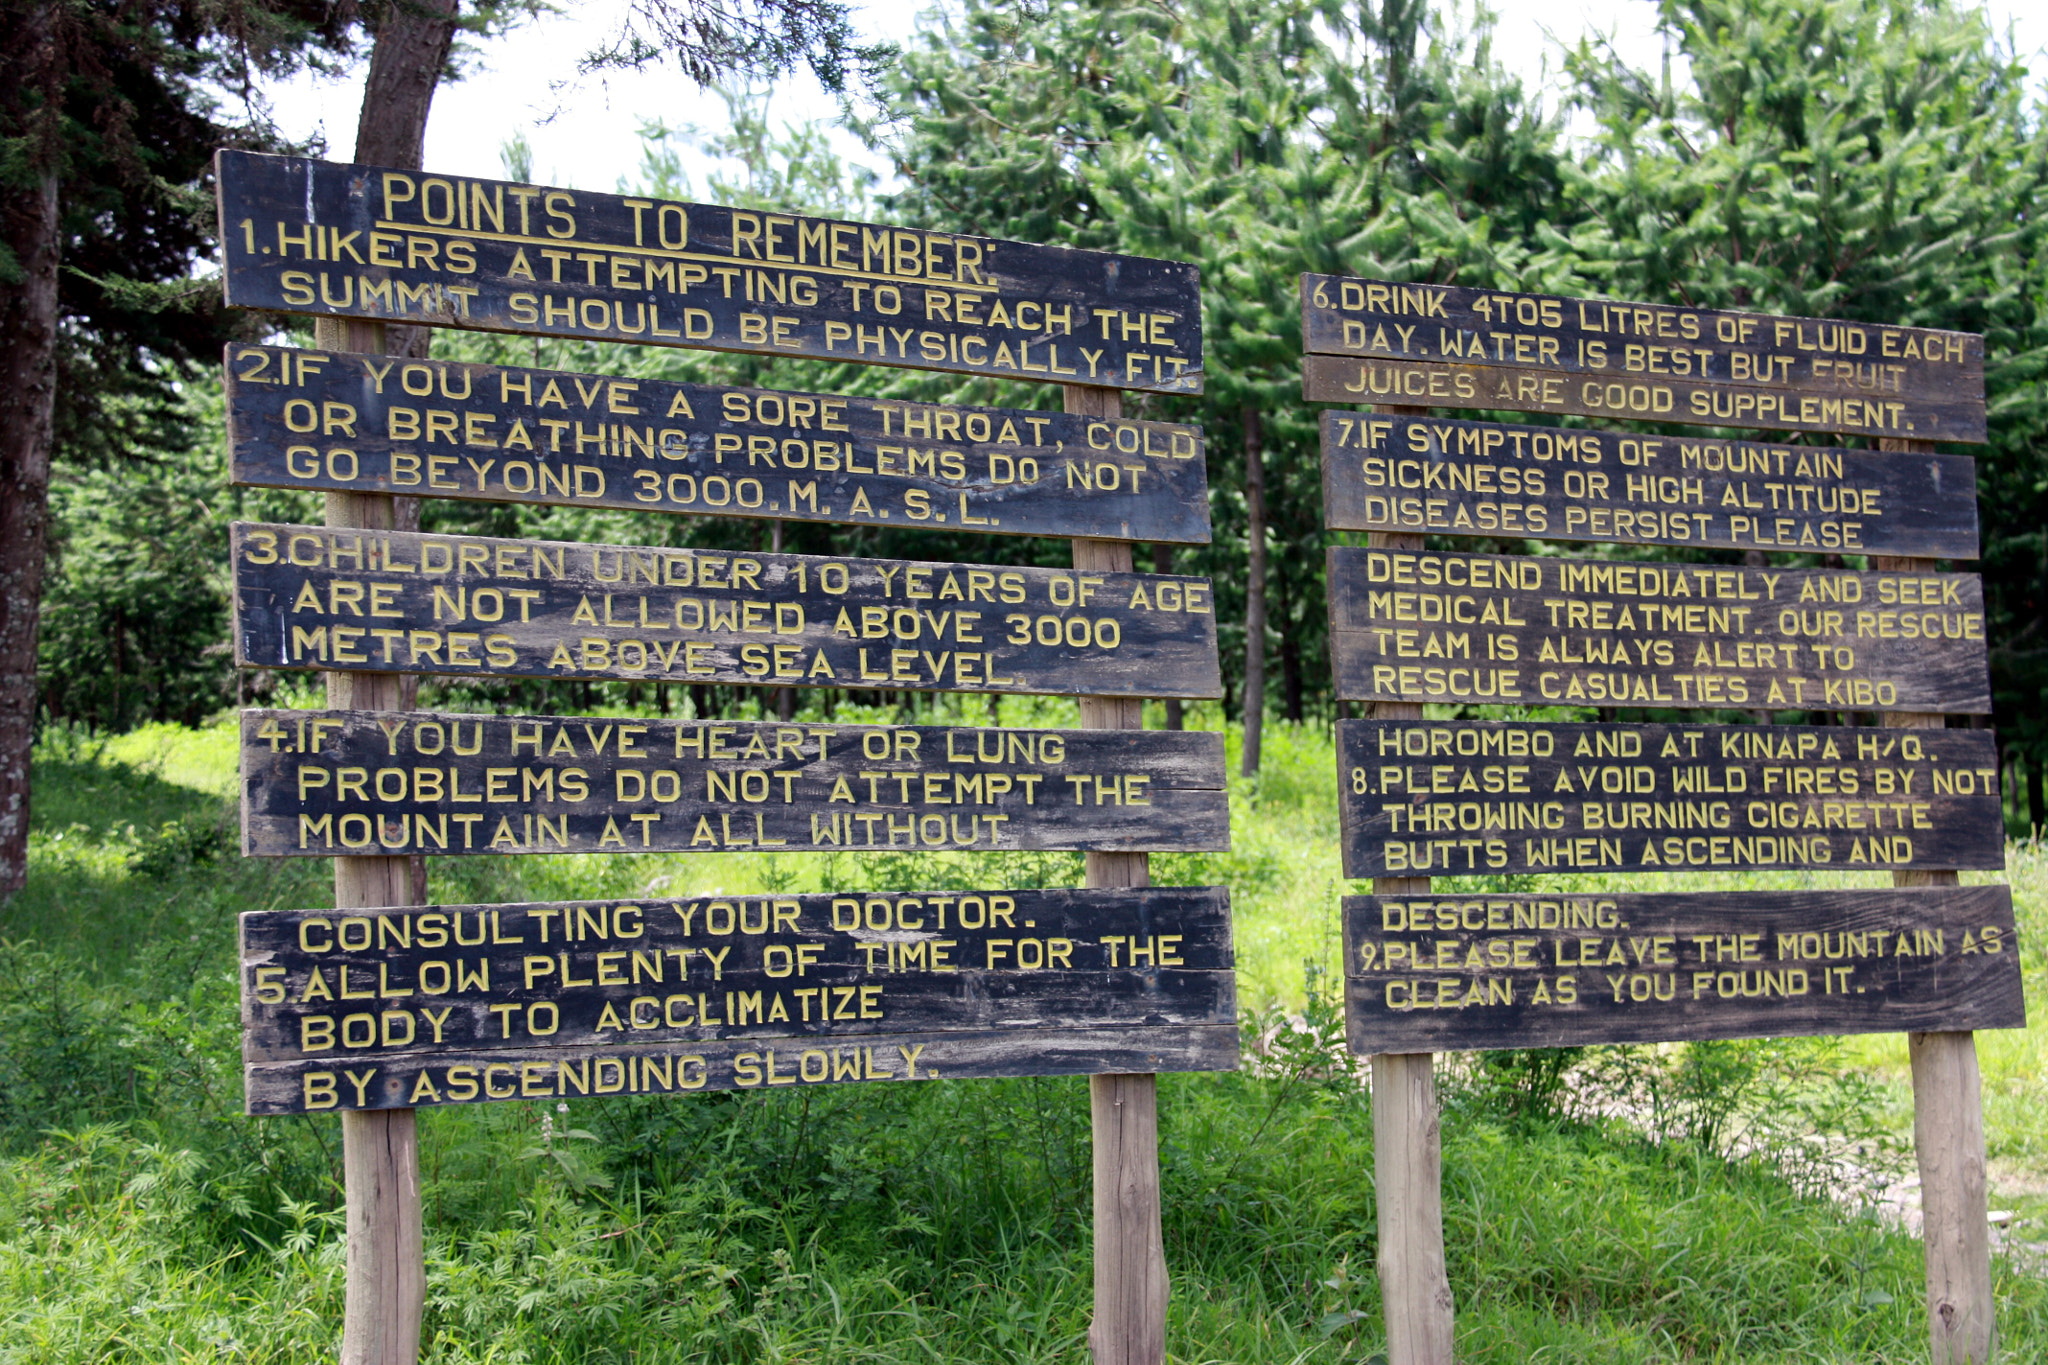 POINTS TO REMEMBER:
1. HIKERS ATTEMPTING TO REACH THE
SUMMIT SHOULD BE PHYSICALLY FIT.
2. IF YOU HAVE A SORE THROAT, COLD
OR BREATHING PROBLEMS DO NOT
GO BEYOND 3000.M.A.S.L.
3. CHILDREN UNDER 10 YEARS OF AGE
ARE NOT ALLOWED ABOVE 3000
METRES ABOVE SEA LEVEL.
4. IF YOU HAVE HEART OR LUNG
PROBLEMS DO NOT ATTEMPT THE
MOUNTAIN AT ALL WITHOUT
CONSULTING YOUR DOCTOR.
5. ALLOW PLENTY OF TIME FOR THE
BODY TO ACCLIMATIZE
BY ASCENDING SLOWLY.
6. DRINK 4TO5 LITRES OF FLUID EACH
DAY. WATER IS BEST BUT FRUIT
JUICES ARE GOOD SUPPLEMENT.
7. IF SYMPTOMS OF MOUNTAIN
SICKNESS OR HIGH ALTITUDE
DISEASES PERSIST PLEASE
DESCEND IMMEDIATELY AND SEEK
MEDICAL TREATMENT. OUR RESCUE
TEAM IS ALWAYS ALERT TO
RESCUE CASUALTIES AT KIBO
HOROMBO AND AT KINAPA H/Q.
8. PLEASE AVOID WILD FIRES BY NOT
THROWING BURNING CIGARETTE
BUTTS WHEN ASCENDING AND
DESCENDING.
9. PLEASE LEAVE THE MOUNTAIN AS
CLEAN AS YOU FOUND IT.